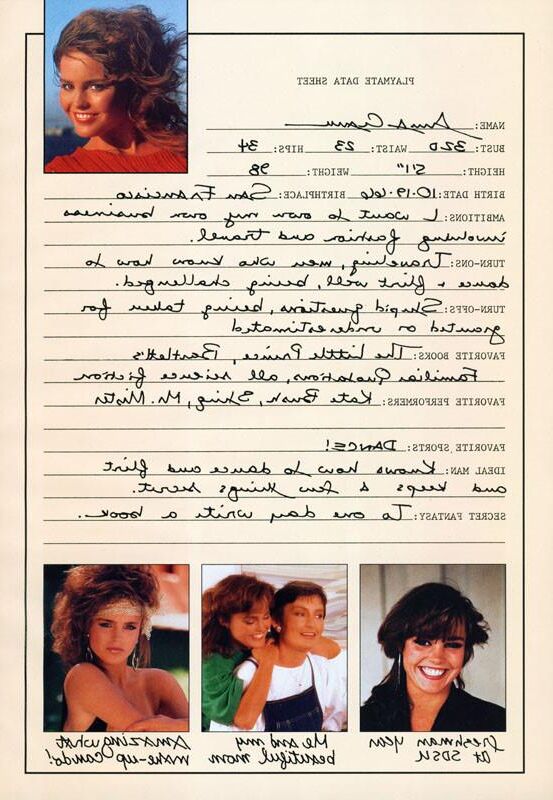 PLAYMATE DATA SHEET
NAME: Anna
BUST: 32D WAIST: 23 HIPS: 34
HEIGHT: 5'1" WEIGHT: 98
BIRTH DATE: 10·19·66 BIRTHPLACE: San Francisco
AMBITIONS: I want to own my own business
involving fashion and travel.
TURN-ONS: Traveling, men who know how to
dance & flirt well, being challenged.
TURN-OFFS: Stupid questions, being taken for
granted or underestimated
FAVORITE BOOKS: The Little Prince, Bartlett's
Familiar Quotations, all science fiction
FAVORITE PERFORMERS: Kate Bush, Sting, Mr. Mister
FAVORITE SPORTS: DANCE!
IDEAL MAN: Knows how to dance and flirt
and keeps a few things secret.
SECRET FANTASY: To one day write a book...
freshman year
At SDSU
Me and my
beautiful mom
Amazing what
make-up can do!